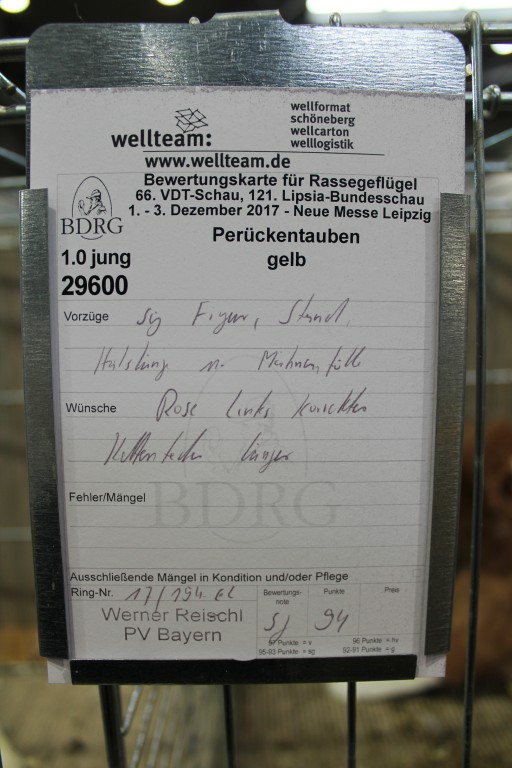 wellteam:
wellformat
schöneberg
wellcarton
welllogistik
www.wellteam.de
BDRG
Bewertungskarte für Rassegeflügel
66. VDT-Schau, 121. Lipsia-Bundesschau
1. - 3. Dezember 2017 - Neue Messe Leipzig
Perückentauben
1.0 jung gelb
29600
Vorzüge sg Figur, Stand,
u. Mähnenfülle
Wünsche Rose links korrekter
Kettenfeder länger
Fehler/Mängel
BDRG
Ausschließende Mängel in Kondition und/oder Pflege
Ring-Nr. 17/194
Werner Reischl
PV Bayern
Bewertungs-
note
sg
Punkte
94
Preis
97 Punkte = v 96 Punkte = hv
95-93 Punkte = sg 92-91 Punkte = g